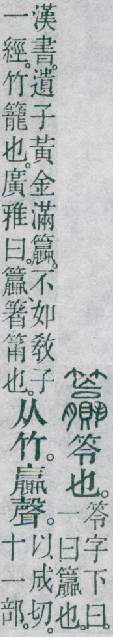 籝笭也。
笭字下曰。
一曰籝也。
漢書。遺子黃金滿籝。不如敎子
一經。竹籠也。廣雅曰。籝、箸筩也。
从竹。贏聲。
以成切。
十一部。